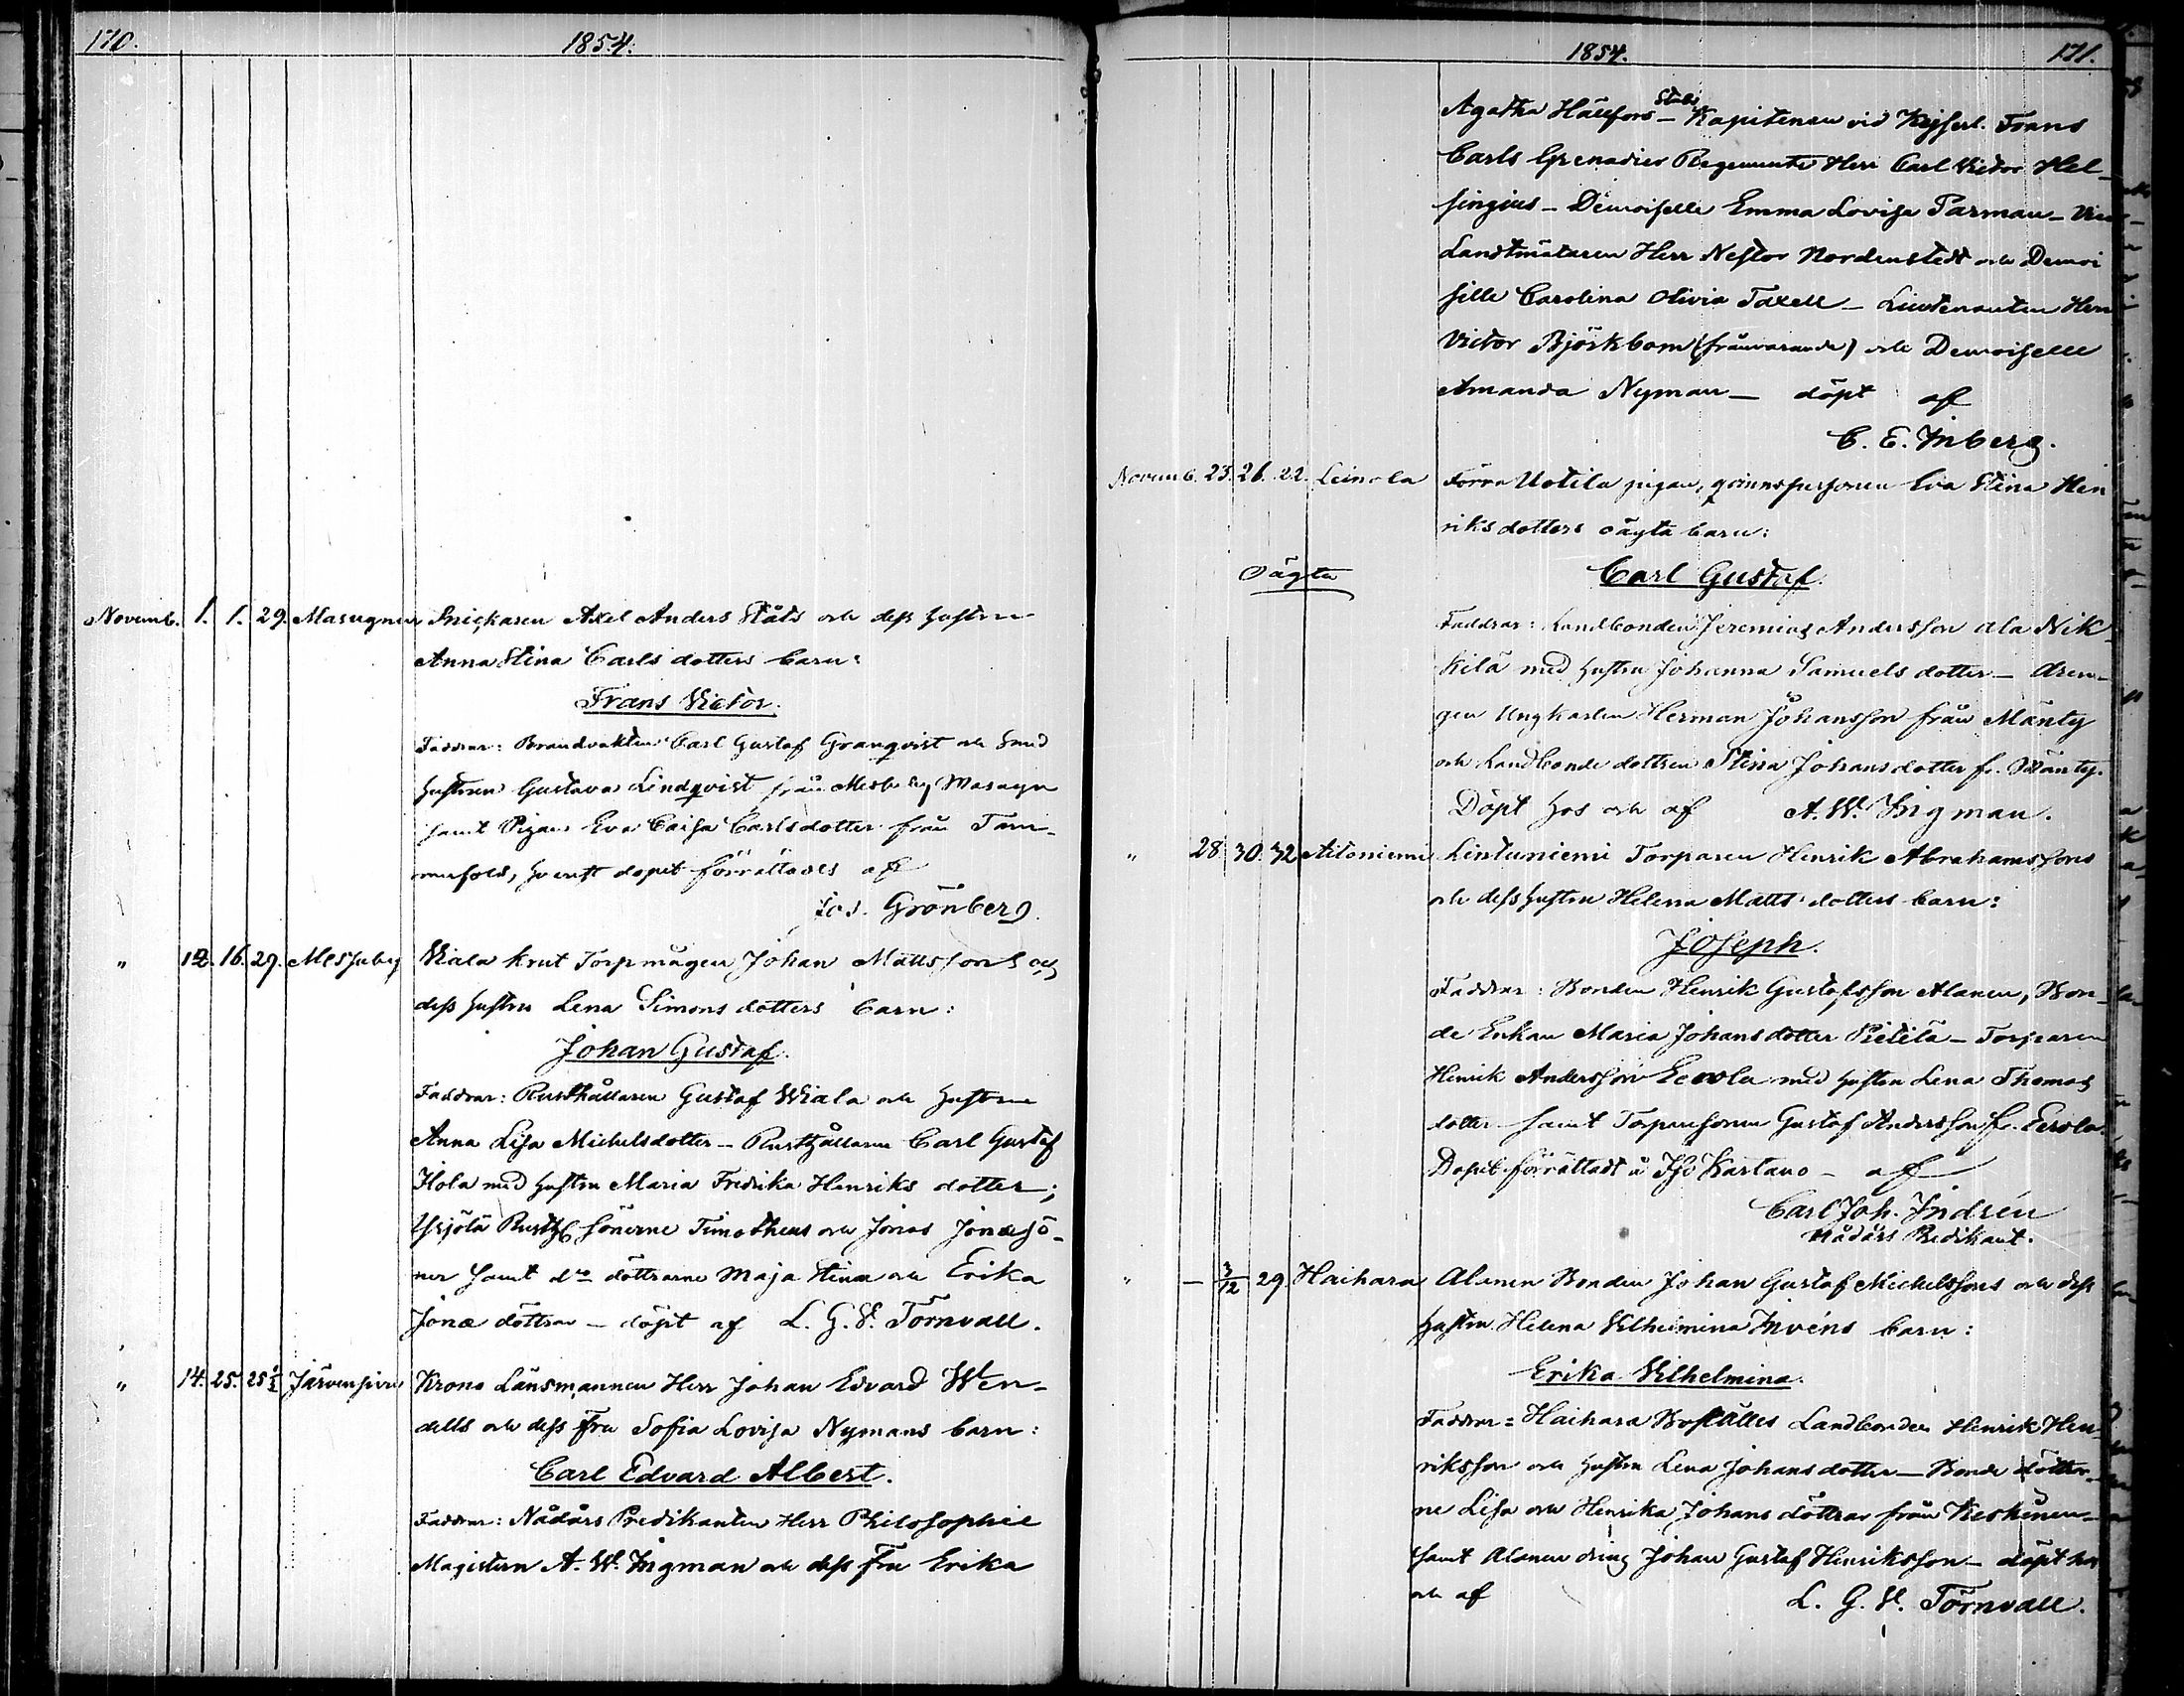 170. 1854.
Novemb. 1. 1. 29. Masugnen Snickaren Axel Anders Ståls och dess hustru
Anna Stina Carlsdotters barn:
Frans Victor.
Faddrar: Brandvakten Carl Gustaf Granqvist och Smed
hustrun Gustava Lindqvist från Messuby Masugn
samt Pigan Eva Caisa Carlsdotter från Tam-
merfors, hvarest dopet förrättades af
Jos. Grönberg.
" 12. 16. 29. Messuby Wiala krut Torpmågen Johan Mattssons och
dess hustru Lena Simonsdotters barn:
Johan Gustaf.
Faddrar: Rusthållaren Gustaf Wiala och hustrun
Anna Lisa Michelsdotter – Rusthållaren Carl Gustaf
Hola med hustru Maria Fredrika Henriks dotter;
Yrjölä Rusth. sönerne Timotheus och Jonas Jonæ sö-
ner samt d:o döttrarne Maja Stina och Erika
Jonæ döttrar – döpt af L. G. V. Törnvall.
" 14. 25. 25½ Järvensivu Krono Länsmannen Herr Johan Edvard Wen-
dells och dess Fru Sofia Lovisa Nymans barn:
Carl Edvard Albert.
Faddrar: Nådårs Predikanten Herr Philosophie
Magistern A. W. Ingman och dess Fru Erika
1854. 171.
Agatha Hällfors – Stabs Kapitenen vid Kejserl. Frans
Carls Grenadier Regemente Herr Carl Victor Hel-
singius – Demoiselle Emma Lovisa Parman – Vice
Landtmätaren Herr Nestor Nordenstedt och Demoi
selle Carolina Olivia Taxell – Lieutenanten Herr
Victor Björkbom (frånvarande) och Demoiselle
Amanda Nyman – döpt af
C. E. Inberg.
Novemb. 23. 26. 22. Leinola Förra Uotila pigan, qvinnspersonen Eva Stina Hen
riksdotters oägta barn:
Oägta Carl Gustaf.
Faddrar: Landbonden Jeremias Andersson ala Nik-
kilä med hustru Johanna Samuels dotter – Dren-
gen Ungkarlen Herman Johansson från Mänty
och Landbonde dottren Stina Johansdotter fr. Mänty.
Döpt hos och af A. W. Ingman.
" 28. 30. 32 Aitoniemi Lintuniemi Torparen Henrik Abrahamssons
och dess hustru Helena Matts dotters barn:
Joseph.
Faddrar: Bonden Henrik Gustafsson Alanen, Bon-
de Enkan Maria Johansdotter Pietilä – Torparen
Henrik Andersson Eerola med hustru Lena Thomas
dotter samt Torparesonen Gustaf Andersson fr. Eerola.
Dopet förrättadt å Iso Kartano – af
Carl Joh. Indrén
Nådårs Predikant.
" – 3/12 29. Haihara Alanen Bonden Johan Gustaf Michelssons och dess
hustru Helena Vilhelmina Invéns barn:
Erika Vilhelmina.
Faddrar: Haihara Boställes Landbonden Henrik Hen-
riksson och hustru Lena Johansdotter – Bonde döttrar-
ne Lisa och Henrika Johans döttrar från Keskinen
samt Alanen dräng Johan Gustaf Henriksson – döpt hos
och af L. G. V. Törnvall.